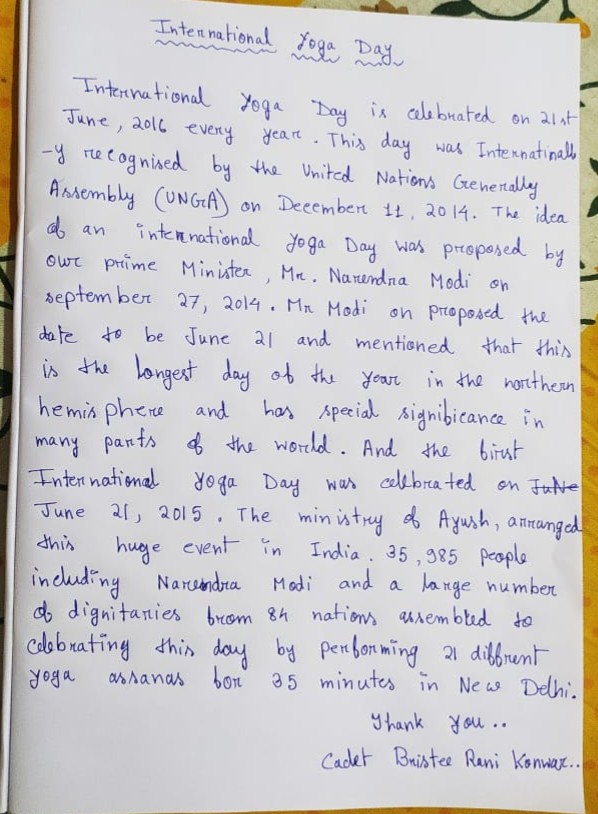 International Yoga Day
International Yoga Day is celebrated on 21st
June, 2016 every year. This day was Internatinall
-y recognised by the United Nations Generally
Assembly (UNGA) on December 11, 2014. The idea
of an international Yoga Day was proposed by
our prime Minister, Mr. Narendra Modi on
september 27, 2014. Mr Modi on proposed the
date to be June 21 and mentioned that this
is the longest day of the year in the northern
hemisphere and has special significance in
many parts of the world. And the first
International Yoga Day was celebrated on June
June 21, 2015. The ministry of Ayush, arranged
this huge event in India. 35,985 people
including Narendra Modi and a large number
of dignitaries from 84 nations assembled to
celebrating this day by performing 21 diffrent
yoga assanas for 35 minutes in New Delhi.
Thank you..
Cadet Bristee Rani Konwar..